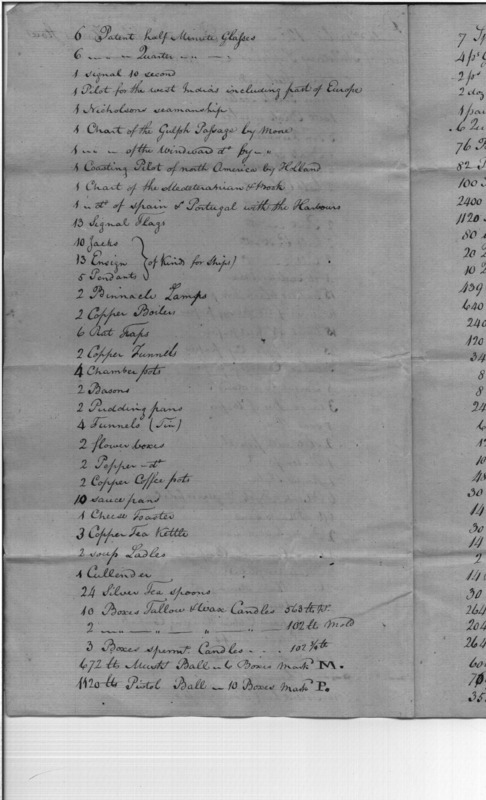 6 Patent half Minute Glasses
6 — — Quarter — —
1 Signal 10 second
1 Pilot for the west Indias including part of Europe
1 Nicholsons seamanship
1 Chart of the Gulph Passage by More
1 — — of the Windward do by — "
1 Coasting Pilot of north America by Holland
1 Chart of the Mediterranian & Book
1 " do of Spain & Portugal with the Harbours
13 Signal Flags
10 Jacks
13 Ensign } (of Kinds for Ships)
5 Pendants
2 Binnacle Lamps
2 Copper Boilers
6 Rat Traps
2 Copper Funnels
4 Chamber pots
2 Basons
2 Pudding pans
4 Funnels (Tin)
2 flower boxes
2 Pepper — do
2 Copper Coffee pots
10 sauce pans
1 Cheese Toaster
3 Copper Tea Kettle
2 soup Ladles
1 Cullender
24 Silver Tea spoons
10 Boxes Tallow & Wax Candles 563 lb Wt.
2 — — — " — " — 102 lb Mold
3 Boxes spermt. Candles . . . 102 ½ lb
672 lb Muskt Ball in 6 Boxes mark M.
1120 lb Pistol Ball in 10 Boxes Mark P.
7
4 ps
2 ps
2 doz
1 pair
6
76
82
100
2400
1120
80
20
10
439
640
240
120
34
8
8
24
10
48
30
14
30
14
2
14
30
264
204
264
60